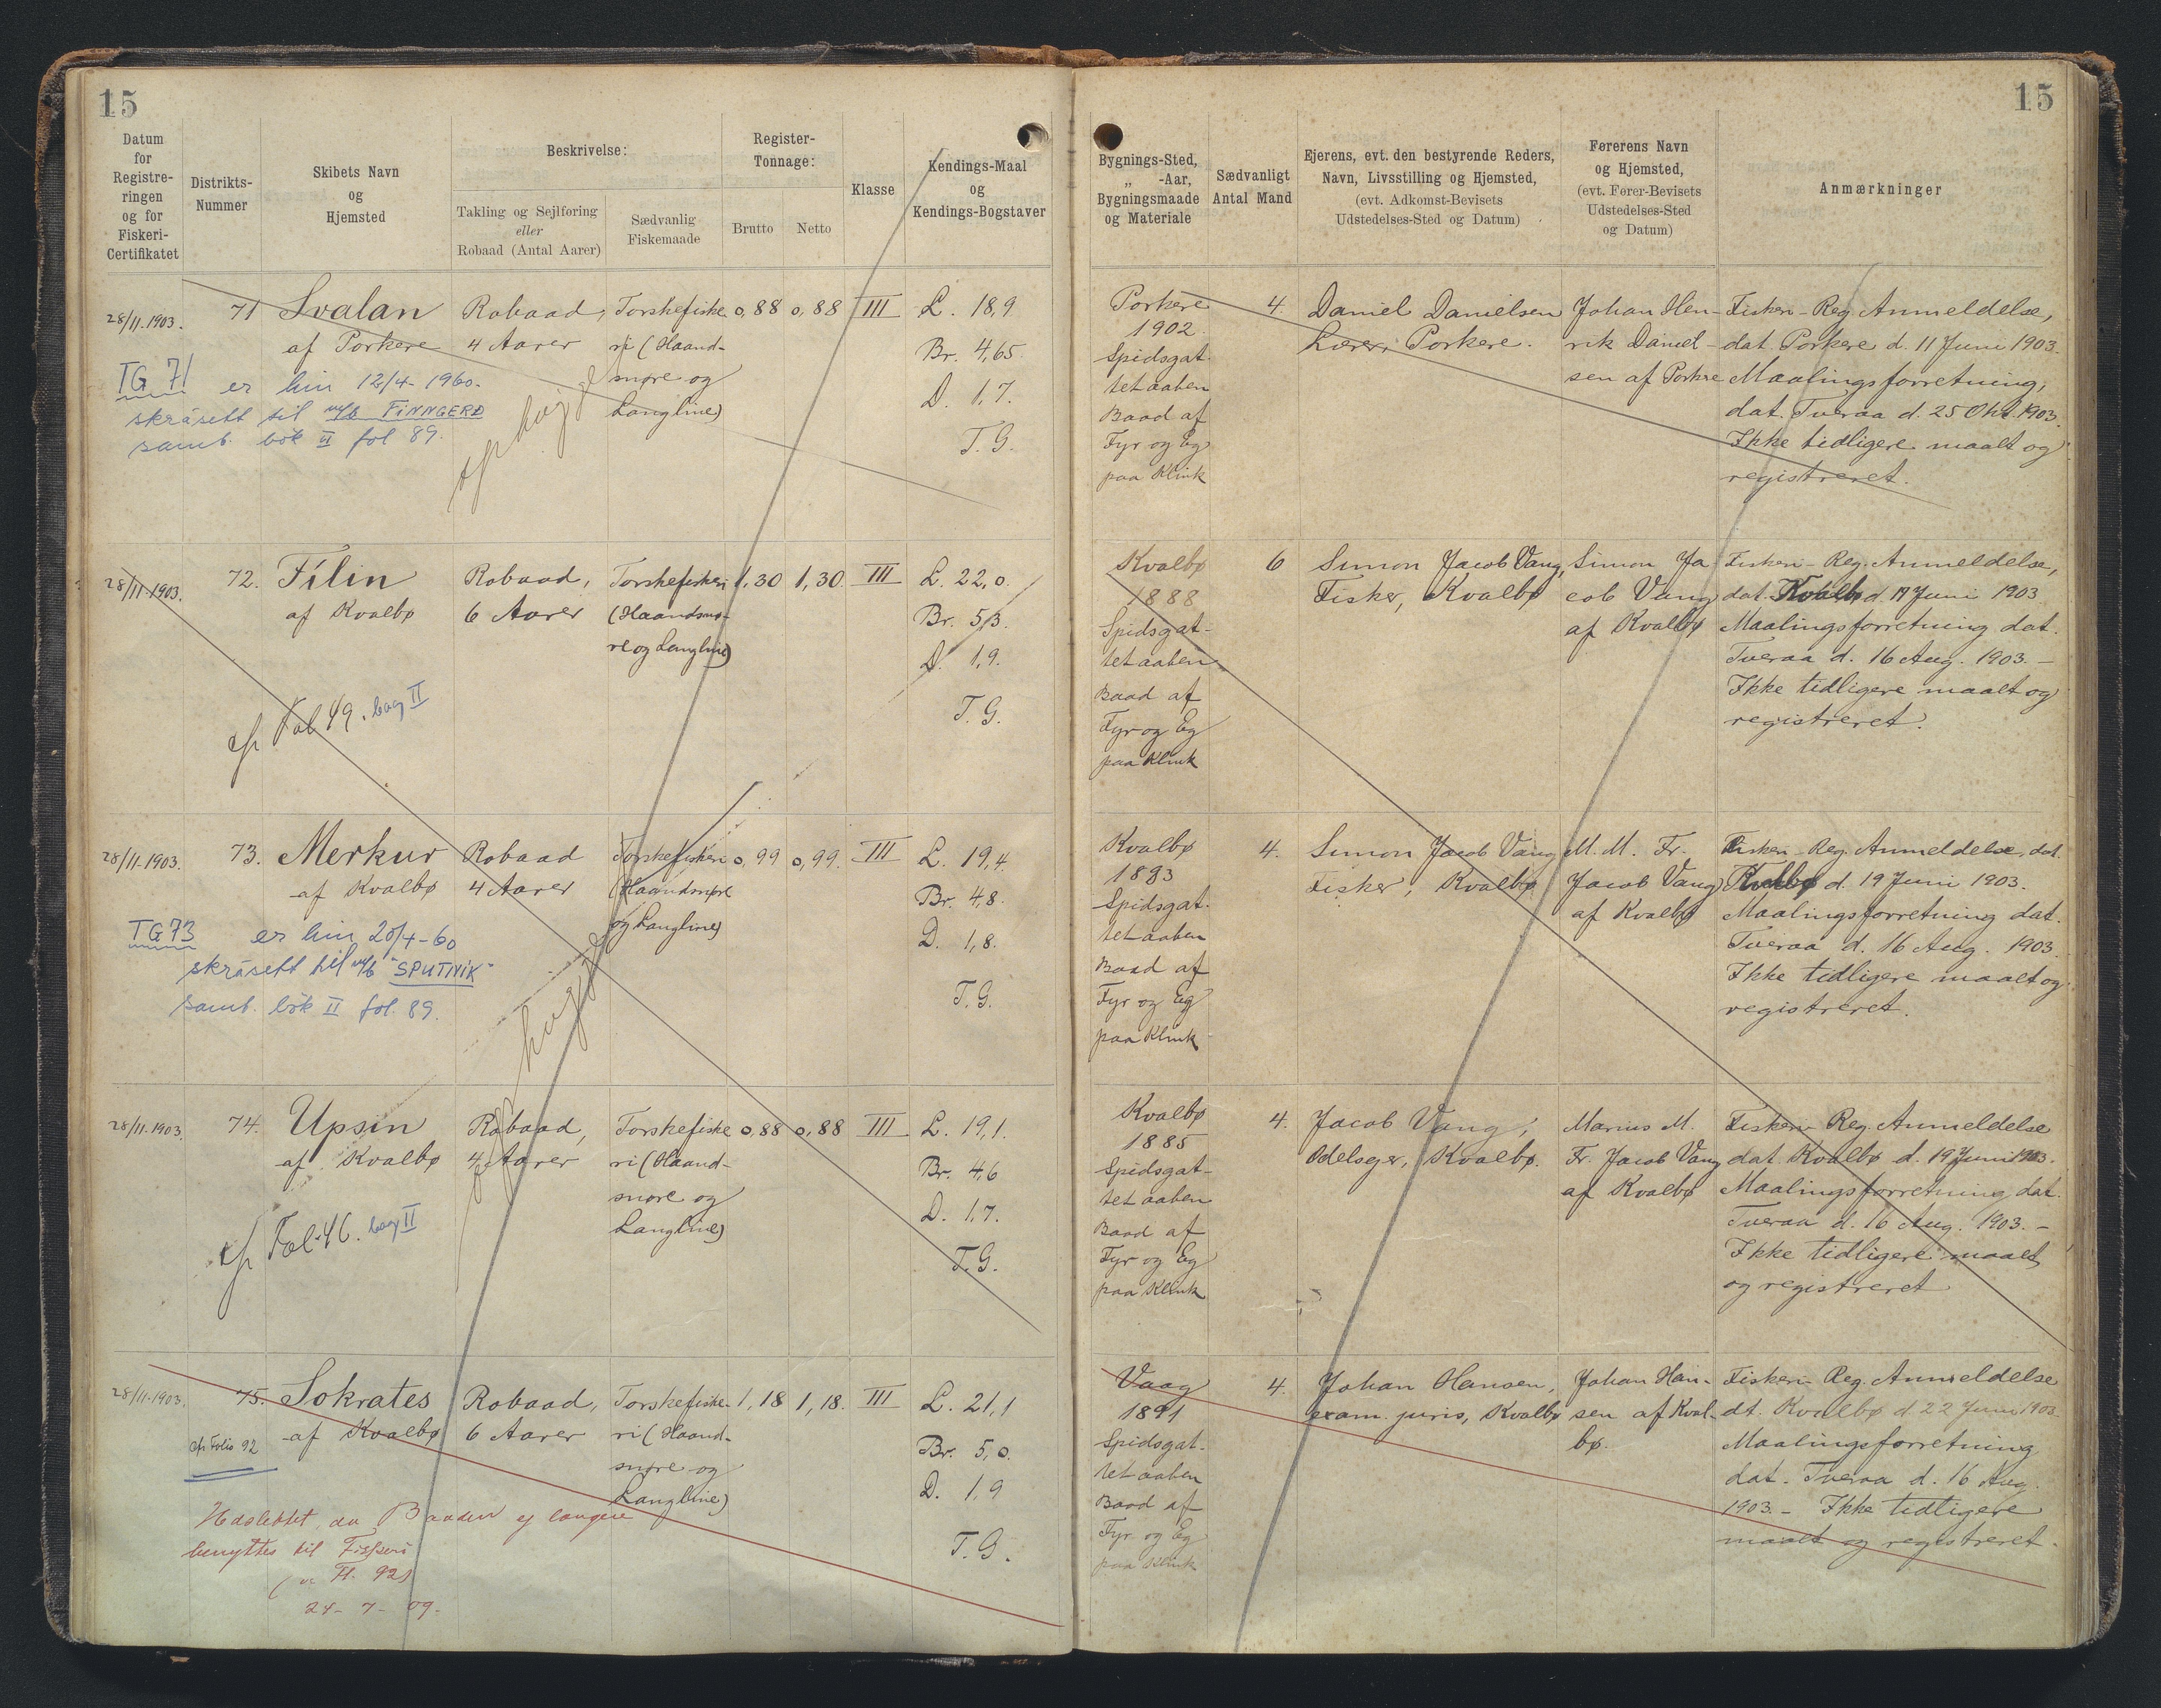 15
15
Datum
for
Registre-
ringen
og for
Fiskeri-
Certifikatet
Distrikts-
Nummer
Skibets Navn
og
Hjemsted
Beskrivelse:
Takling og Sejlføring
eller
Robaad (Antal Aarer)
Sædvanlig
Fiskemaade
Register-
Tonnage:
Brutto
Netto
Klasse
Kendings-Maal
og
Kendings-Bogstaver
Bygnings-Sted,
„ -Aar,
Bygningsmaade
og Materiale
Sædvanligt
Antal Mand
Ejerens, evt. den bestyrende Reders,
Navn, Livsstilling og Hjemsted,
(evt. Adkomst-Bevisets
Udstedelses-Sted og Datum)
Førerens Navn
og Hjemsted,
(evt. Fører-Bevisets
Udstedelses-Sted
og Datum)
Anmærkninger
28/11. 1903.
71
Svalan
af Porkere
Robaad,
4 Aarer
Torskefiske
ri (Haand-
snøre og
Langline)
0,88
0,88
III
L. 18,9
Br. 4,65.
D. 1,7.
T. G.
TG 71 er hin 12/4-1960.
skrásett til m/b FINNGERD
samb. bók II fol 89.
Porkere
1902.
Spidsgat-
tet aaben
Baad af
Fyr og Eg
paa Klink
4.
Daniel Danielsen
Lærer, Porkere.
Johan Hen-
rik Daniel-
sen af Porkere
Fiskeri-Reg. Anmeldelse,
dat. Porkere d. 11 Juni 1903.
Maalingsforretning,
dat. Tveraa d. 25 Okt. 1903.
Ikke tidligere maalt og
registreret.
28/11. 1903.
72.
Filin
af Kvalbø
Robaad,
6 Aarer
Torskefiskeri
(Haandsnø-
re og Langline)
1,30
1,30.
III
L. 22,0.
Br. 5,3.
D. 1,9.
T. G.
cfr Fol 49. bog II
Kvalbø
1888
Spidsgat-
tet aaben
Baad af
Fyr og Eg
paa Klink
6
Simon Jacob Vang,
Fisker, Kvalbø
Simon Ja
cob Vang
af Kvalbø
Fiskeri-Reg. Anmeldelse,
dat. Kvalbø d. 19 Juni 1903
Maalingsforretning dat.
Tveraa d. 16 Aug. 1903. —
Ikke tidligere maalt og
registreret.
28/11. 1903.
73.
Merkur
af Kvalbø
Robaad
4 Aarer
Torskefiskeri
(Haandsnøre
og Langline)
0,99
0,99.
III
L. 19,4.
Br. 4,8.
D. 1,8.
T. G.
TG 73 er hin 20/4-60
skrásett til m/b "SPUTNIK"
samb. bók II fol. 89.
Kvalbø
1893
Spidsgat-
tet aaben
Baad af
Fyr og Eg
paa Klink
4.
Simon Jacob Vang
Fisker, Kvalbø
M. M. Fr.
Jacob Vang
af Kvalbø
Fiskeri-Reg. Anmeldelse, dat.
Kvalbø d. 19 Juni 1903.
Maalingsforretning dat.
Tveraa d. 16 Aug. 1903.
Ikke tidligere maalt og
registreret.
28/11. 1903.
74.
Upsin
af Kvalbø
Robaad,
4 Aarer
Torskefiske
ri (Haand-
snøre og
Langline)
0,88
0,88
III
L. 19,1.
Br. 4,6
D. 1,7.
T. G.
cfr Fol. 46. bog II
Kvalbø
1885
Spidsgat-
tet aaben
Baad af
Fyr og Eg
paa Klink
4.
Jacob Vang,
Odelsejer, Kvalbø.
Marius M.
Fr. Jacob Vang
af Kvalbø
Fiskeri-Reg. Anmeldelse
dat. Kvalbø d. 19 Juni 1903.
Maalingsforretning dat.
Tveraa d. 16 Aug. 1903. —
Ikke tidligere maalt
og registreret
28/11. 1903.
75.
Sokrates
af Kvalbø
Robaad,
6 Aarer
Torskefiske-
ri (Haand-
snøre og
Langline)
1,18
1,18.
III
L. 21,1
Br. 5,0.
D. 1,9
T. G.
cfr Folio 92
Udslettet, da Baaden ej længere
benyttes til Fiskeri
Fl. 92)
24-7-09.
Vaag
1891
Spidsgat-
tet aaben
Baad af
Fyr og Eg
paa Klink
4.
Johan Hansen,
exam. juris, Kvalbø
Johan Han-
sen af Kval-
bø.
Fiskeri-Reg. Anmeldelse
dt. Kvalbø d 22 Juni 1903.
Maalingsforretning
dat. Tveraa d. 16 Aug.
1903. — Ikke tidligere
maalt og registreret.